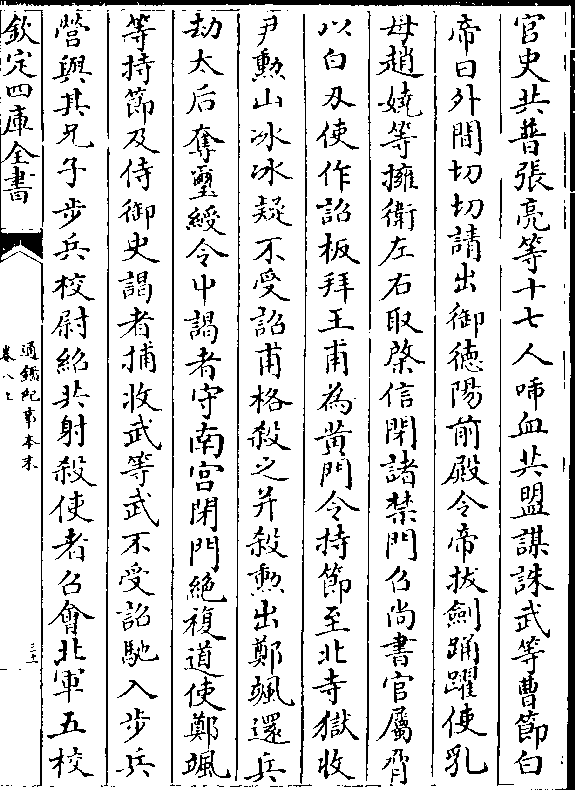 官史共普張亮等十七人啑血共盟謀誅武等曹節白
帝曰外間切切請出御徳陽前殿令帝拔劍踊躍使乳
母趙嬈等擁衛左右取棨信閉諸禁門召尚書官屬脅
以白刃使作詔板拜王甫為黃門令持節至北寺獄收
尹勲山冰冰疑不受詔甫格殺之并殺勲出鄭颯還兵
劫太后奪璽綬令中謁者守南宮閉門絶複道使鄭颯
等持節及侍御史謁者捕收武等武不受詔馳入步兵
營與其兄子步兵校尉紹共射殺使者召㑹北軍五校
欽定四庫全書
通鑑紀事本末
卷八上